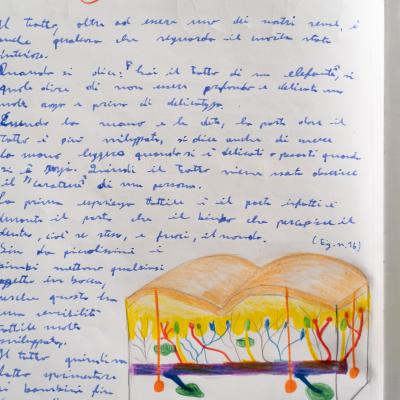 Il tatto, oltre ad essere uno dei nostri sensi, è
anche qualcosa che riguarda il nostro stato
interiore.
Quando si dice: "hai il tatto di un elefante", si
vuole dire di non essere profondo e delicato ma
molto rozzo e privo di delicatezza.
Essendo la mano e le dita, la parte dove il
tatto è più sviluppato, si dice anche di avere
la mano leggera quando si è delicati o pesante quando
si è rozzi. Quindi il tatto viene usato
il "carattere" di una persona.
La prima esperienza tattile è il parto infatti è
durante il parto che il bimbo che percepisce il
dentro, cioè se stesso, e fuori, il mondo.
(Fig. n. 16)
Sin da piccolissimi i
bimbi mettono qualsiasi
oggetto in bocca,
perché questa ha
una sensibilità
tattile molto
sviluppata.
Il tatto quindi va
fatto sperimentare
ai bambini fin